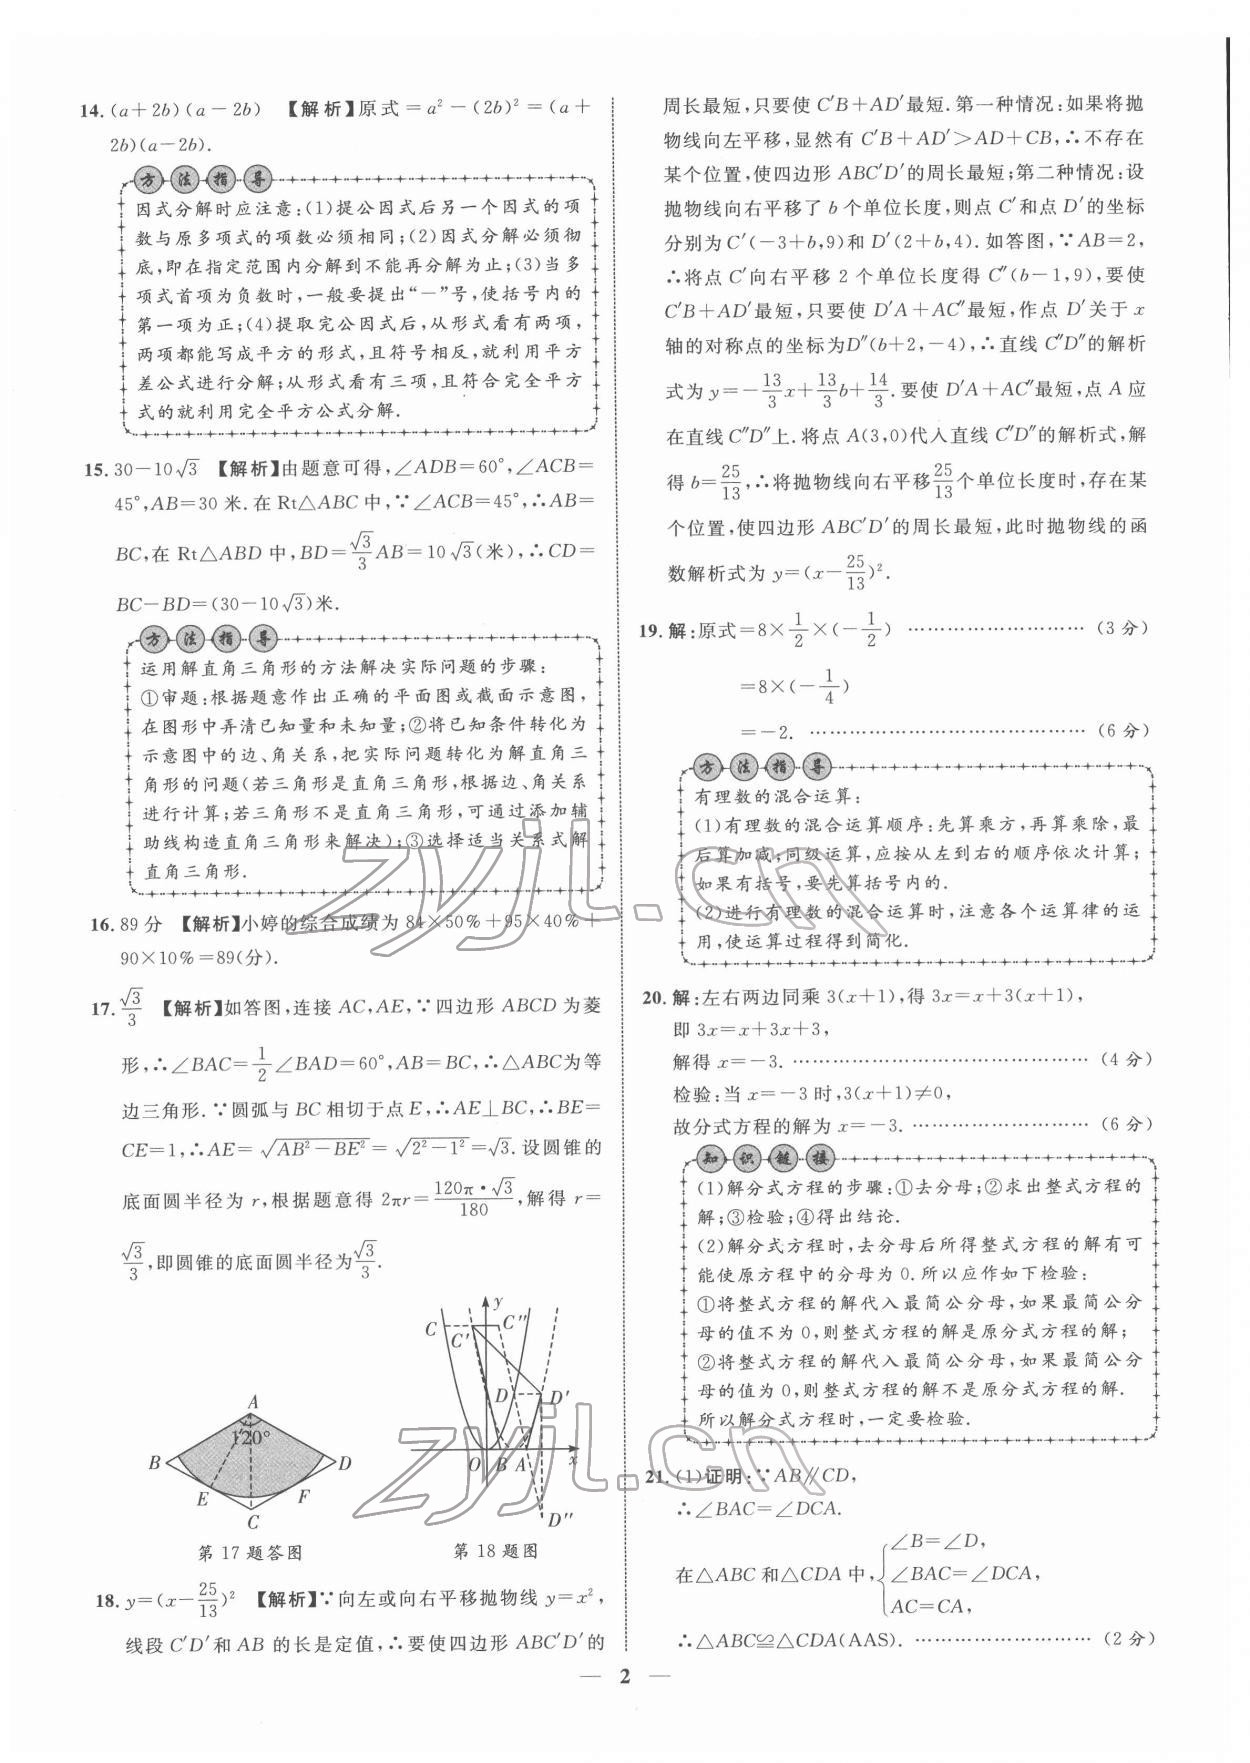 14. (a+2b)(a-2b) 【解析】原式=a²-(2b)²=(a+
2b)(a-2b).
方法指导
因式分解时应注意:(1)提公因式后另一个因式的项
数与原多项式的项数必须相同;(2)因式分解必须彻
底,即在指定范围内分解到不能再分解为止;(3)当多
项式首项为负数时,一般要提出“-”号,使括号内的
第一项为正;(4)提取完公因式后,从形式看有两项,
两项都能写成平方的形式,且符号相反,就利用平方
差公式进行分解;从形式看有三项,且符合完全平方
式的就利用完全平方公式分解.
15. 30-10√3 【解析】由题意可得,∠ADB=60°,∠ACB=
45°,AB=30米.在Rt△ABC中,∵∠ACB=45°,∴AB=
BC,在Rt△ABD中,BD=√3/3AB=10√3(米),∴CD=
BC-BD=(30-10√3)米.
方法指导
运用解直角三角形的方法解决实际问题的步骤:
①审题:根据题意作出正确的平面图或截面示意图,
在图形中弄清已知量和未知量;②将已知条件转化为
示意图中的边、角关系,把实际问题转化为解直角三
角形的问题(若三角形是直角三角形,根据边、角关系
进行计算;若三角形不是直角三角形,可通过添加辅
助线构造直角三角形来解决);③选择适当关系式解
直角三角形.
16. 89分 【解析】小婷的综合成绩为84×50%+95×40%+
90×10%=89(分).
17. √3/3 【解析】如答图,连接AC,AE,∵四边形ABCD为菱
形,∴∠BAC=1/2∠BAD=60°,AB=BC,∴△ABC为等
边三角形.∵圆弧与BC相切于点E,∴AE⊥BC,∴BE=
CE=1,∴AE=√(AB²-BE²)=√(2²-1²)=√3.设圆锥的
底面圆半径为r,根据题意得2πr=120π·√3/180,解得r=
√3/3,即圆锥的底面圆半径为√3/3.
A
120°
B
D
E
F
C
第17题答图
y
C
C'
C''
D
D'
O
B
A
x
D''
第18题图
18. y=(x-25/13)² 【解析】∵向左或向右平移抛物线y=x²,
线段C'D'和AB的长是定值,∴要使四边形ABC'D'的
周长最短,只要使C'B+AD'最短.第一种情况:如果将抛
物线向左平移,显然有C'B+AD'>AD+CB,∴不存在
某个位置,使四边形ABC'D'的周长最短;第二种情况:设
抛物线向右平移了b个单位长度,则点C'和点D'的坐标
分别为C'(-3+b,9)和D'(2+b,4).如答图,∵AB=2,
∴将点C'向右平移2个单位长度得C''(b-1,9),要使
C'B+AD'最短,只要使D'A+AC''最短,作点D'关于x
轴的对称点的坐标为D''(b+2,-4),∴直线C''D''的解析
式为y=-13/3x+13/3b+14/3.要使D'A+AC''最短,点A应
在直线C''D''上.将点A(3,0)代入直线C''D''的解析式,解
得b=25/13,∴将抛物线向右平移25/13个单位长度时,存在某
个位置,使四边形ABC'D'的周长最短,此时抛物线的函
数解析式为y=(x-25/13)².
19. 解:原式=8×1/2×(-1/2) …………………… (3分)
=8×(-1/4)
=-2. …………………………… (6分)
方法指导
有理数的混合运算:
(1)有理数的混合运算顺序:先算乘方,再算乘除,最
后算加减;同级运算,应按从左到右的顺序依次计算;
如果有括号,要先算括号内的.
(2)进行有理数的混合运算时,注意各个运算律的运
用,使运算过程得到简化.
20. 解:左右两边同乘3(x+1),得3x=x+3(x+1),
即3x=x+3x+3,
解得x=-3. …………………………… (4分)
检验:当x=-3时,3(x+1)≠0,
故分式方程的解为x=-3. …………………… (6分)
知识链接
(1)解分式方程的步骤:①去分母;②求出整式方程的
解;③检验;④得出结论.
(2)解分式方程时,去分母后所得整式方程的解有可
能使原方程中的分母为0.所以应作如下检验:
①将整式方程的解代入最简公分母,如果最简公分
母的值不为0,则整式方程的解是原分式方程的解;
②将整式方程的解代入最简公分母,如果最简公分
母的值为0,则整式方程的解不是原分式方程的解.
所以解分式方程时,一定要检验.
21. (1)证明:∵AB∥CD,
∴∠BAC=∠DCA.
在△ABC和△CDA中,{∠B=∠D,
∠BAC=∠DCA,
AC=CA,
∴△ABC≌△CDA(AAS). …………………… (2分)
— 2 —
zyjl.cn
zyjl.cn